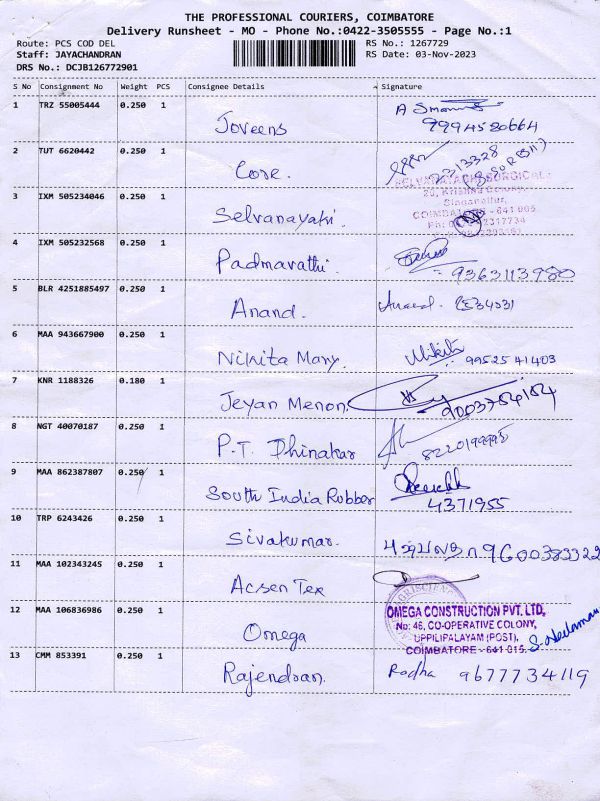 THE PROFESSIONAL COURIERS, COIMBATORE
Delivery Runsheet - MO - Phone No.:0422-3505555 - Page No.:1
Route: PCS COD DEL RS No.: 1267729
Staff: JAYACHANDRAN RS Date: 03-Nov-2023
DRS No.: DCJB126772901
S No Consignment No Weight PCS Consignee Details Signature
1 TRZ 55005444 0.250 1 Joveens
9994580664
2 TUT 6620442 0.250 1 Core.
3 IXM 505234046 0.250 1 Selvanayaki.
COIMBATORE - 641 005
4 IXM 505232568 0.250 1 Padmavathi.
9363113980
5 BLR 4251885497 0.250 1 Anand. Anand.
6 MAA 943667900 0.250 1 Nikita Mary. Nikita
9952541403
7 KNR 1188326 0.180 1 Jeyan Menon.
9003754184
8 NGT 40070187 0.250 1 P.T. Dhinakar
9 MAA 862387807 0.250 1 South India Rubber
4371955
10 TRP 6243426 0.250 1 Sivakumar. 9600383322
11 MAA 102343245 0.250 1 Acsen Tex
12 MAA 106836986 0.250 1 Omega
OMEGA CONSTRUCTION PVT. LTD,
No: 46, CO-OPERATIVE COLONY,
UPPILIPALAYAM (POST),
COIMBATORE - 641 015.
13 CMM 853391 0.250 1 Rajendran. Radha 9677734119